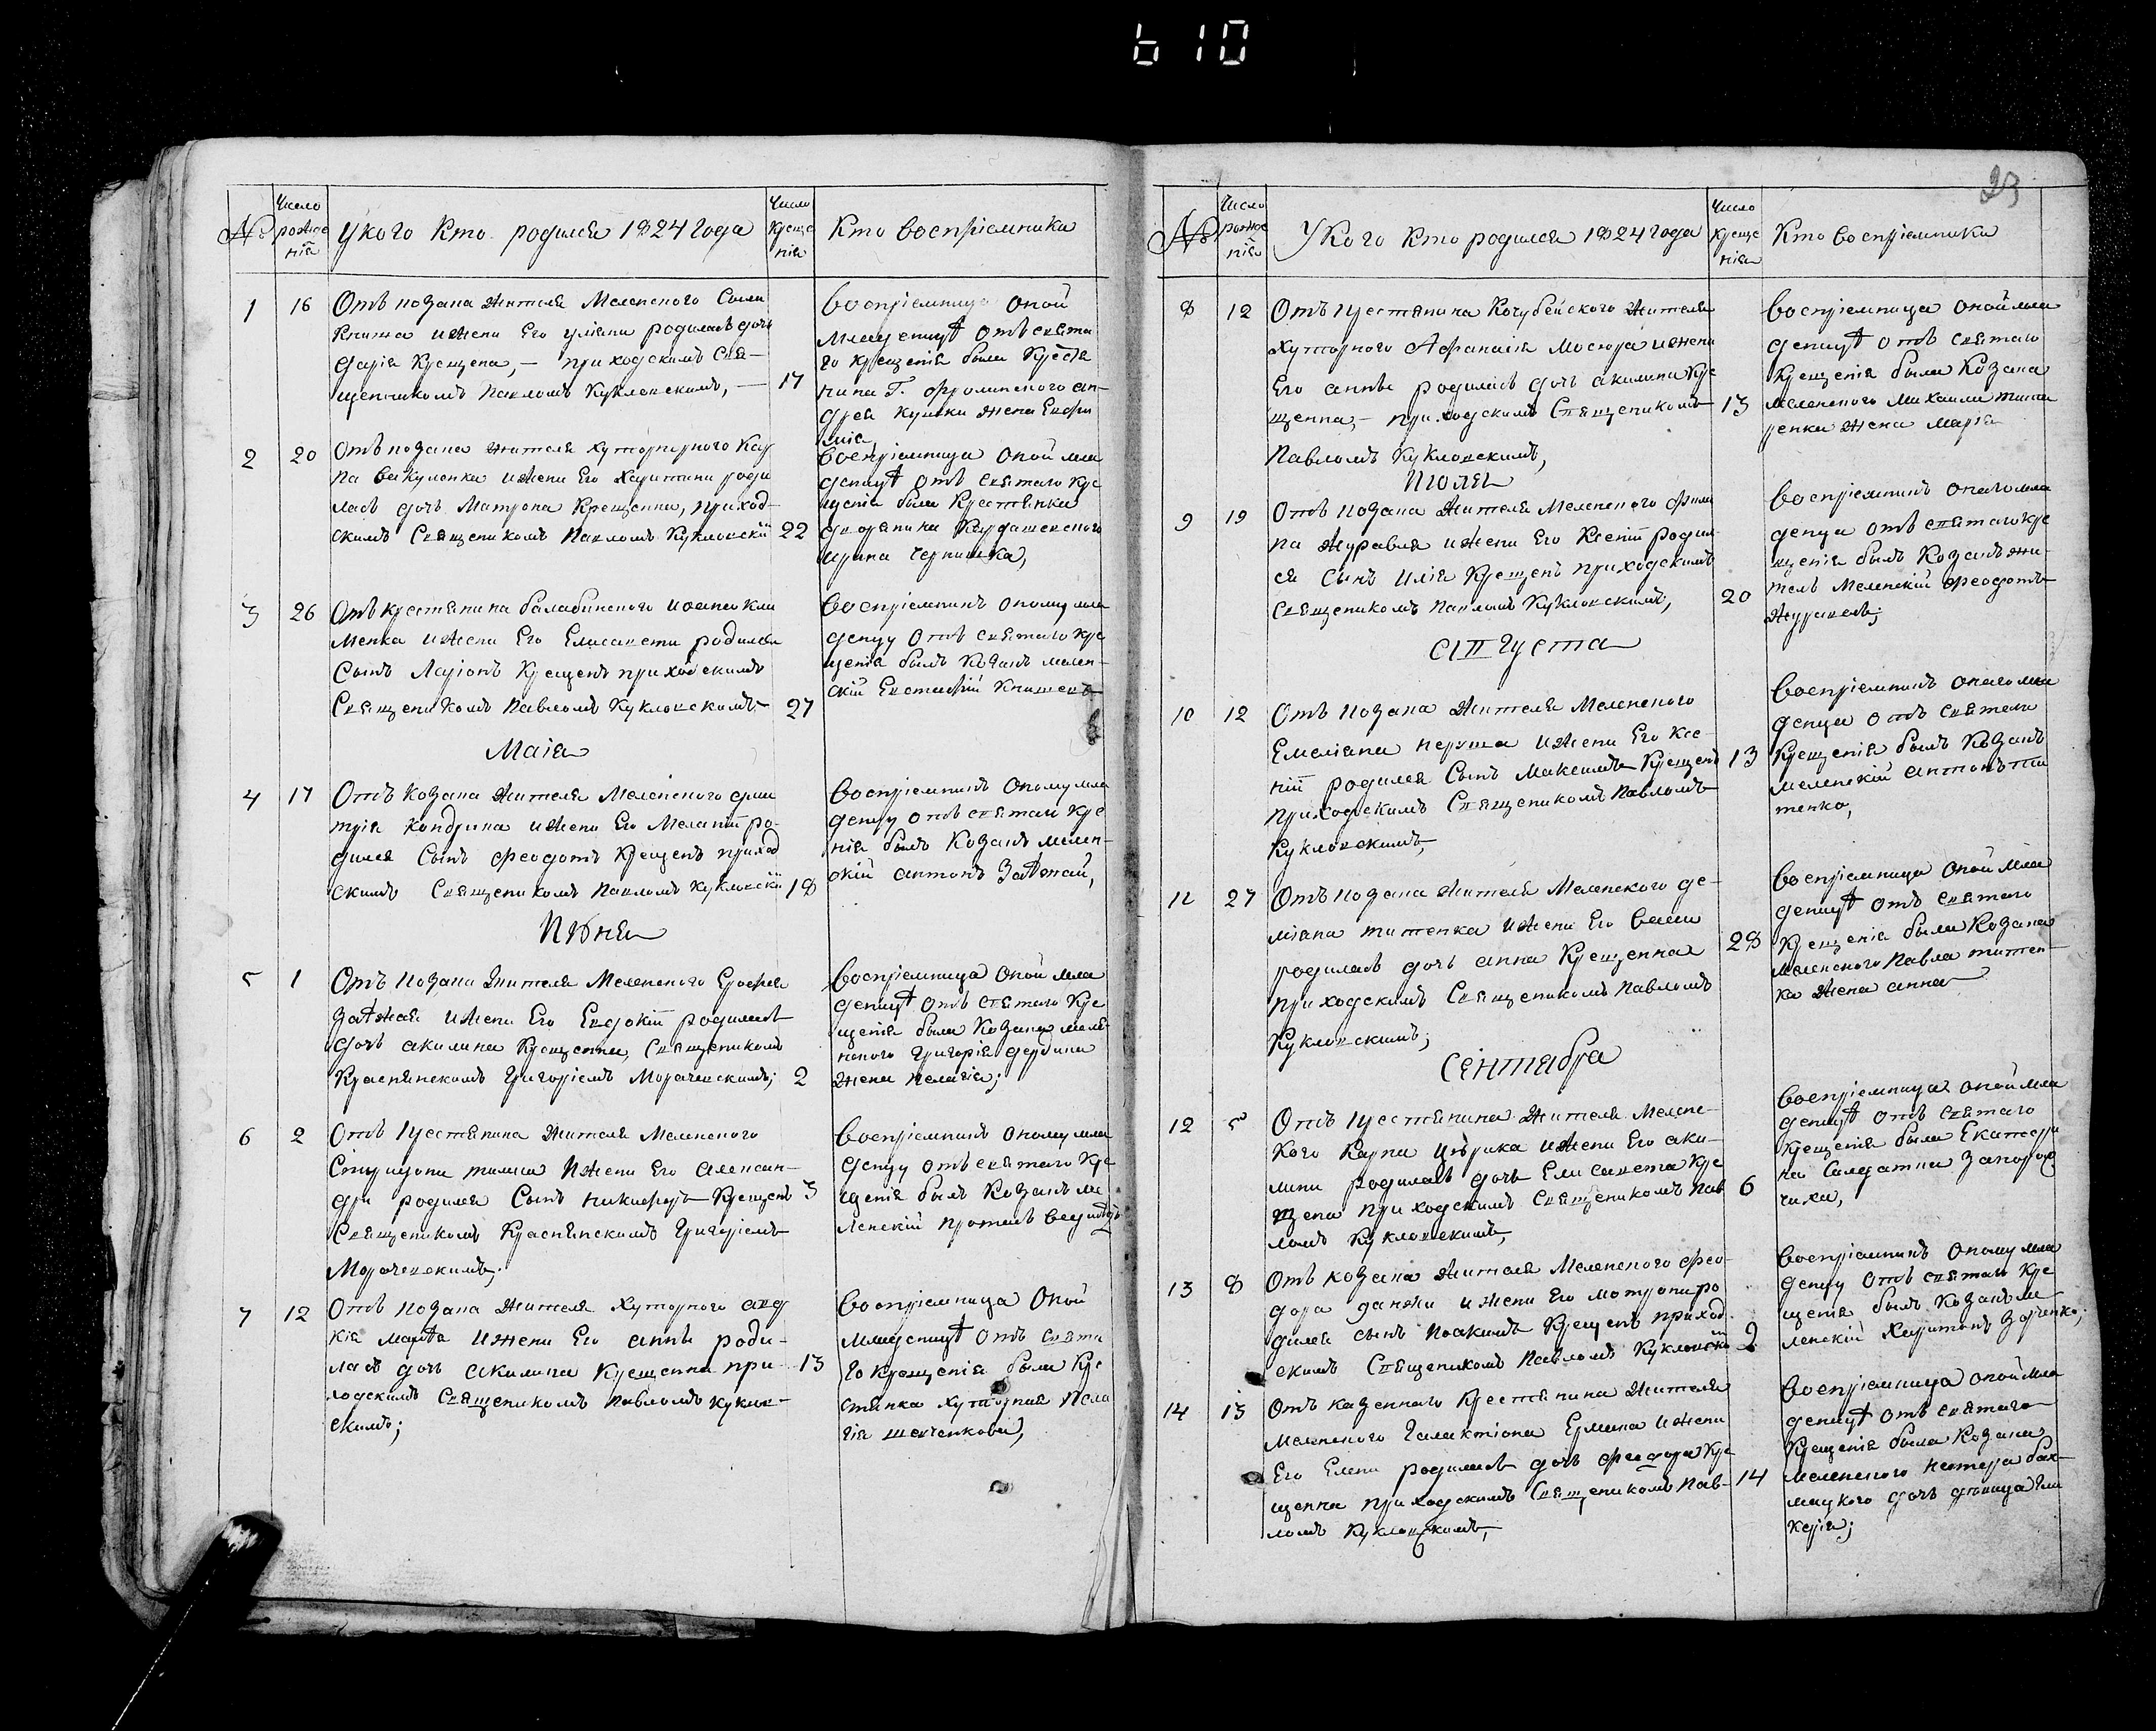 610
23
№
Число рожде нія
У кого Кто родился 1824 года
Число Креще нія
Кто воспріемники
1 16 Отъ козака жителя Меленского
Книша и жены Его уліяни родилась дочь
Дарія Крещена, — приходскимъ Свя-
щенникомъ Павломъ Кукловскимъ, — 17
воспріемница оной
младенцѣ отъ свята
го крещенія была Крестя
нина Г. Фролинского ан-
дрея кулики жена Евфи
мія
2 20 Отъ козака жителя хуторного Кар
па Вакуленка и жены Его Харитини роди
лась дочь Матрона Крещенна, приход-
скимъ Священикомъ Павломъ Кукловскій 22
воспріемница оной мла
денцѣ отъ святаго кре
щенія была Крестянка
дворянина Кардашевского
ирина Чернишка,
3 26 Отъ крестянина балабинского
менка и жены Его Елисавети родился
Сынъ Ларіонъ Крещенъ приходскимъ
Священикомъ Павломъ Кукловскимъ 27
воспріемникъ оному мла
денцу отъ святаго кре
щенія былъ Козакъ мелен-
скій Евстафій Книшевъ
Маія
4 17 Отъ козака жителя Меленского дми
трія Кондрика и жены Его Меланіи ро-
дился Сынъ Феодотъ Крещенъ приход
скимъ Священикомъ Павломъ Кукловскій 18
воспріемникъ оному мла
денцу отъ святаго кре
нія былъ Козакъ мелен-
скій антонъ Заѣзжай,
Июня
5 1 Отъ козака жителя Меленского Ерофея
заѣзжая и жены Его Евдокіи родилась
дочь акилина Крещенна, Священикомъ
Краснянскимъ Григоріемъ Морачевскимъ; 2
воспріемница оной мла
денцѣ отъ святаго Кре
щенія была Козака меле
нского Григорія дердика
жена пелагія;
6 2 Отъ Крестянина жителя Меленского
Спиридона и жены Его Алексан-
дри родился Сынъ никифоръ Крещенъ 3
Священикомъ Краснянскимъ Григоріемъ
Морачевскимъ;
воспріемникъ оному мла
денцу отъ святаго кре
щенія былъ Козакъ ме
ленскій
7 12 Отъ козака жителя Хуторного авд
кія и жены Его анны роди-
лась дочь Акилина Крещенна при- 13
ходскимъ Священикомъ Павломъ Куклов-
скимъ;
воспріемница оной
младенцѣ отъ свята
го крещенія была Кре
стянка хуторная Пела
гія шевченкова,
№
Число рожде нія
У Кого Кто родился 1824 года
Число Креще нія
Кто воспріемники
8 12 Отъ крестянина Кочубейского жителя
хуторного Афанасія Мосюра и жены
Его анны родилась дочь акилина Кре
щенна, — приходскимъ Священикомъ 13
Павломъ Кукловскимъ,
воспріемница оной мла
денцѣ отъ святаго
крещенія была Козака
меленского Михаила тите
ренка жена марія
Июля
9 19 Отъ козака жителя Меленского фили
па Журавля и жены Его Ксеніи родил
ся Сынъ илія Крещенъ приходскимъ
Священикомъ павломъ Кукловскимъ, 20
воспріемникъ онаго мла
денца отъ святаго кре
щенія былъ Козакъ жи-
тель Меленскій Феодотъ
Журавель;
Августа
10 12 Отъ козака жителя Меленского
Емеліана и жены Его Ксе-
ніи родился Сынъ Максимъ Крещенъ 13
приходскимъ Священикомъ Павломъ
Кукловскимъ,
воспріемникъ онаго мла
денца отъ святаго
Крещенія былъ Козакъ
меленскій антонъ ти
тенко,
11 27 Отъ козака жителя Меленского де-
міана титенка и жены Его
родилась дочь анна Крещенна 28
приходскимъ Священикомъ Павломъ
Кукловскимъ;
воспріемница оной мла
денцѣ отъ святаго
Крещенія была Козака
меленского Павла титен-
ка жена анна
Сентября
12 5 Отъ крестянина жителя Мелене-
кого Карпа Цюрика и жены Его аки-
лини родилась дочь Елисавета Кре
щена приходскимъ Священикомъ Пав 6
ломъ Кукловскимъ,
воспріемница оной мла
денцѣ отъ святаго
крещенія была Екатери
на Салдатка запорож
чиха,
13 8 Отъ козака жителя Меленского фео-
дора и жены Его мотроны ро
дился сынъ Иоакимъ Крещенъ приход
скимъ Священикомъ Павломъ Кукловскій 9
воспріемникъ оному мла
денцу отъ святаго кре
щенія былъ Козакъ ме
ленскій Харитонъ Зорченко;
14 13 Отъ казеннаго Крестянина жителя
Меленского Галактіона Ермака и жены
Его Елены родилась дочь феодора Кре
щенна приходскимъ Священикомъ Пав- 14
ломъ Кукловскимъ,
воспріемница оной мла
денцѣ отъ святаго
Крещенія была Козака
меленского нестера бах-
мацкого дочь дѣвица Гли
керія;